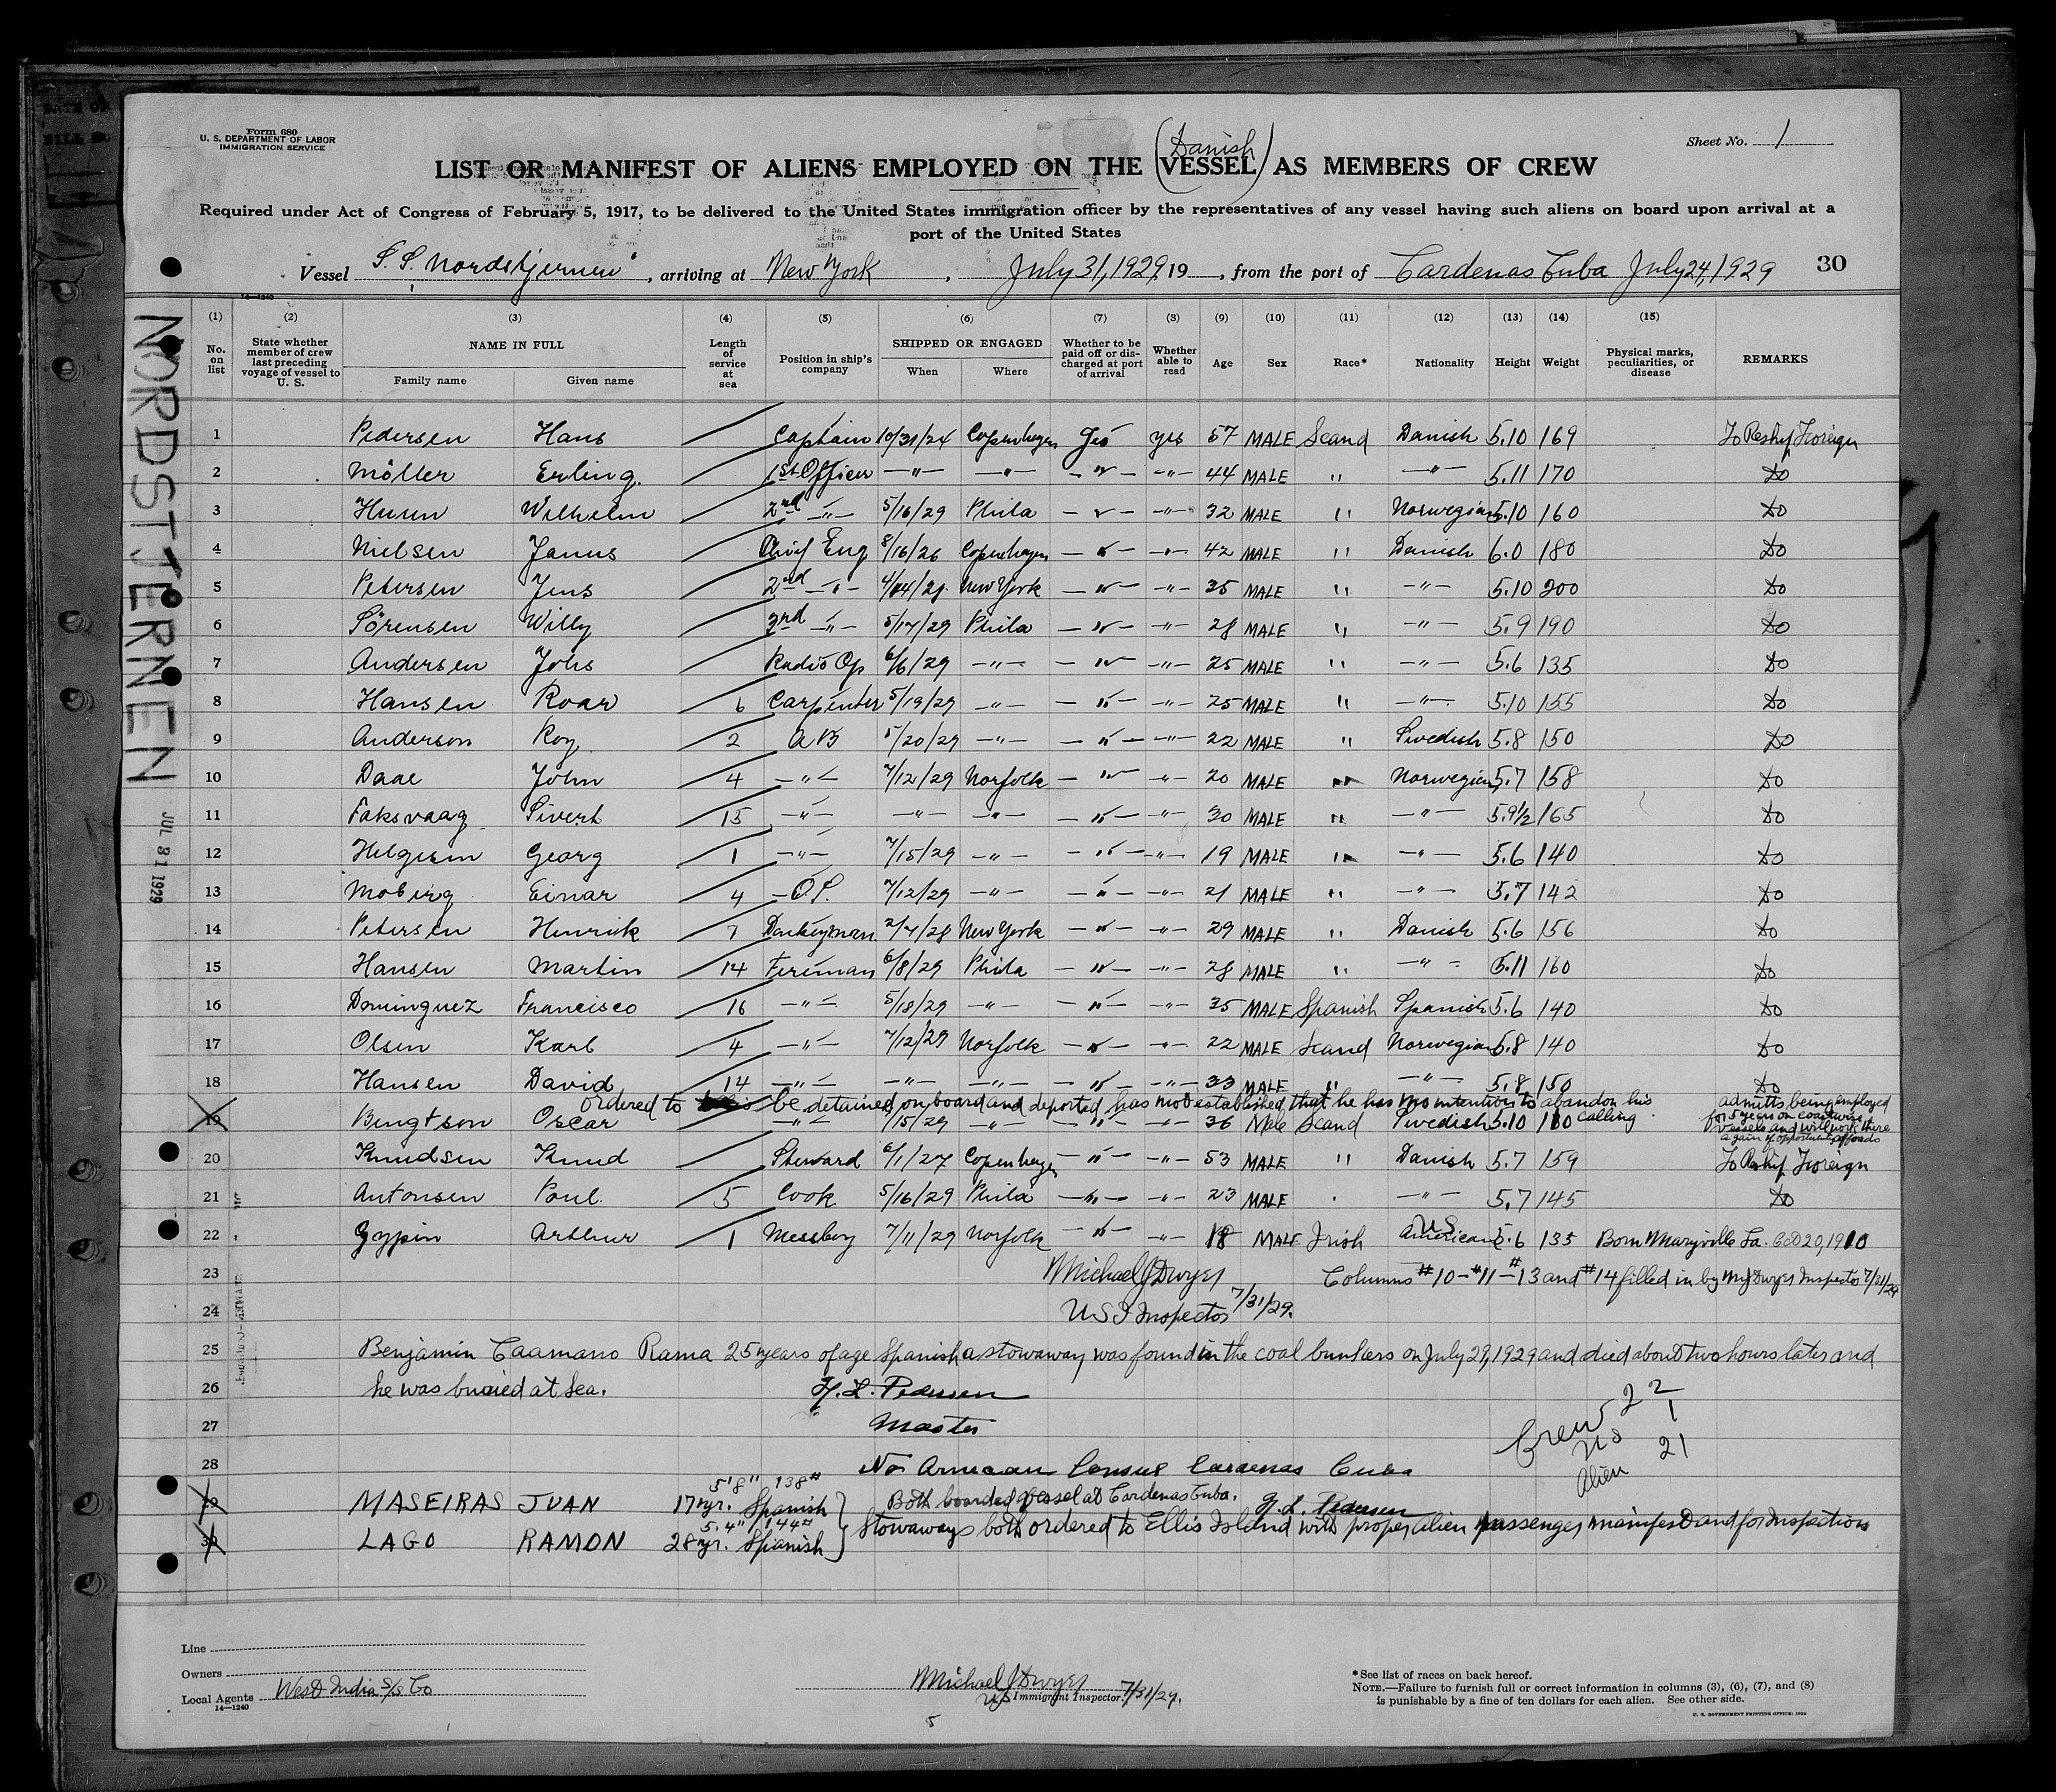 Form 680
U. S. DEPARTMENT OF LABOR
IMMIGRATION SERVICE
Sheet No. 1
(Danish)
LIST OR MANIFEST OF ALIENS EMPLOYED ON THE VESSEL AS MEMBERS OF CREW
Required under Act of Congress of February 5, 1917, to be delivered to the United States immigration officer by the representatives of any vessel having such aliens on board upon arrival at a
port of the United States
Vessel S. S. Nordstjernen, arriving at New York, July 31, 1929, 19, from the port of Cardenas Cuba July 24, 1929 30
NORDSTJERNEN
JUL 31 1929
14—1240
(1) (2) (3) (4) (5) (6) (7) (8) (9) (10) (11) (12) (13) (14) (15)
No. on list
State whether member of crew last preceding voyage of vessel to U. S.
NAME IN FULL
Family name Given name
Length of service at sea
Position in ship's company
SHIPPED OR ENGAGED
When Where
Whether to be paid off or discharged at port of arrival
Whether able to read
Age Sex Race* Nationality Height Weight
Physical marks, peculiarities, or disease
REMARKS
1 Pedersen Hans Captain 10/31/24 Copenhagen Yes yes 57 MALE Scand Danish 5.10 169 To Reshp Foreign
2 Möller Erling 1st Officer —"— —"— —"— —"— 44 MALE " —"— 5.11 170 Do
3 Huun Wilhelm 2nd —"— 5/16/29 Phila —"— —"— 32 MALE " Norwegian 5.10 160 Do
4 Nielsen Janus Chief Eng 8/16/26 Copenhagen —"— —"— 42 MALE " Danish 6.0 180 Do
5 Petersen Jens 2nd —"— New York —"— —"— 35 MALE " —"— 5.10 200 Do
6 Sörensen Willy 3rd —"— 5/17/29 Phila —"— —"— 28 MALE " —"— 5.9 190 Do
7 Andersen Johs Radio Op 6/6/29 —"— —"— —"— 25 MALE " —"— 5.6 135 Do
8 Hansen Roar 6 Carpenter 5/19/29 —"— —"— —"— 25 MALE " —"— 5.10 155 Do
9 Anderson Roy 2 AB 5/20/29 —"— —"— —"— 22 MALE " Swedish 5.8 150 Do
10 Daae John 4 —"— 7/12/29 Norfolk —"— —"— 20 MALE " Norwegian 5.7 158 Do
11 Faksvaag Sivert 15 —"— —"— —"— —"— —"— 30 MALE " —"— 5.9½ 165 Do
12 Helgesen Georg 1 —"— 7/15/29 —"— —"— —"— 19 MALE " —"— 5.6 140 Do
13 Moberg Einar 4 O.S. 7/12/29 —"— —"— —"— 21 MALE " —"— 5.7 142 Do
14 Petersen Henrick 7 Donkeyman 2/7/28 New York —"— —"— 29 MALE " Danish 5.6 156 Do
15 Hansen Martin 14 Fireman 6/8/29 Phila —"— —"— 28 MALE " —"— 5.11 160 Do
16 Dominguez Francisco 16 —"— 5/18/29 —"— —"— —"— 35 MALE Spanish Spanish 5.6 140 Do
17 Olsen Karl 4 —"— 7/12/29 Norfolk —"— —"— 22 MALE Scand Norwegian 5.8 140 Do
18 Hansen David 14 —"— —"— —"— —"— —"— 33 MALE " —"— 5.8 150 Do
ordered to be detained on board and deported, has not established that he has no intention to abandon his calling
admitts being employed for 5 years on coastwise vessels and will work there again if opportunity affords
19 Bengtson Oscar —"— 7/15/29 —"— —"— —"— 36 Male Scand Swedish 5.10
20 Knudsen Knud Steward 6/1/27 Copenhagen —"— —"— 53 MALE " Danish 5.7 159 To Reshp Foreign
21 Antonsen Poul 5 Cook 5/16/29 Phila —"— —"— 23 MALE —"— 5.7 145 Do
22 Gyppin Arthur 1 Messboy 7/11/29 Norfolk —"— —"— 18 MALE Irish U S American 5.6 135 Born Maryville La. Oct 20, 1910
23 Michael J Dwyer Columns #10-#11-#13 and #14 filled in by M J Dwyer Inspector 7/31/29
24 U S I Inspector 7/31/29.
25 Benjamin Caamano Rama 25 years of age Spanish a stowaway was found in the coal bunkers on July 29, 1929 and died about two hours later and
26 he was buried at sea. H. L. Pedersen
27 Master
Crew 22
US 1
Alien 21
28 No American Consul Cardenas Cuba
5'8" 138#
29 MASEIRAS JUAN 17 yr. Spanish } Both boarded vessel at Cardenas Cuba. H. L. Pedersen
5.4" 144#
30 LAGO RAMON 28 yr. Spanish } Stowaways both ordered to Ellis Island with proper alien passenger manifest and for Inspection
Line
Owners
Local Agents West India S/S Co
14—1240
Michael J Dwyer
US Immigrant Inspector. 7/31/29.
5
*See list of races on back hereof.
NOTE.—Failure to furnish full or correct information in columns (3), (6), (7), and (8)
is punishable by a fine of ten dollars for each alien. See other side.
U. S. GOVERNMENT PRINTING OFFICE: 1928